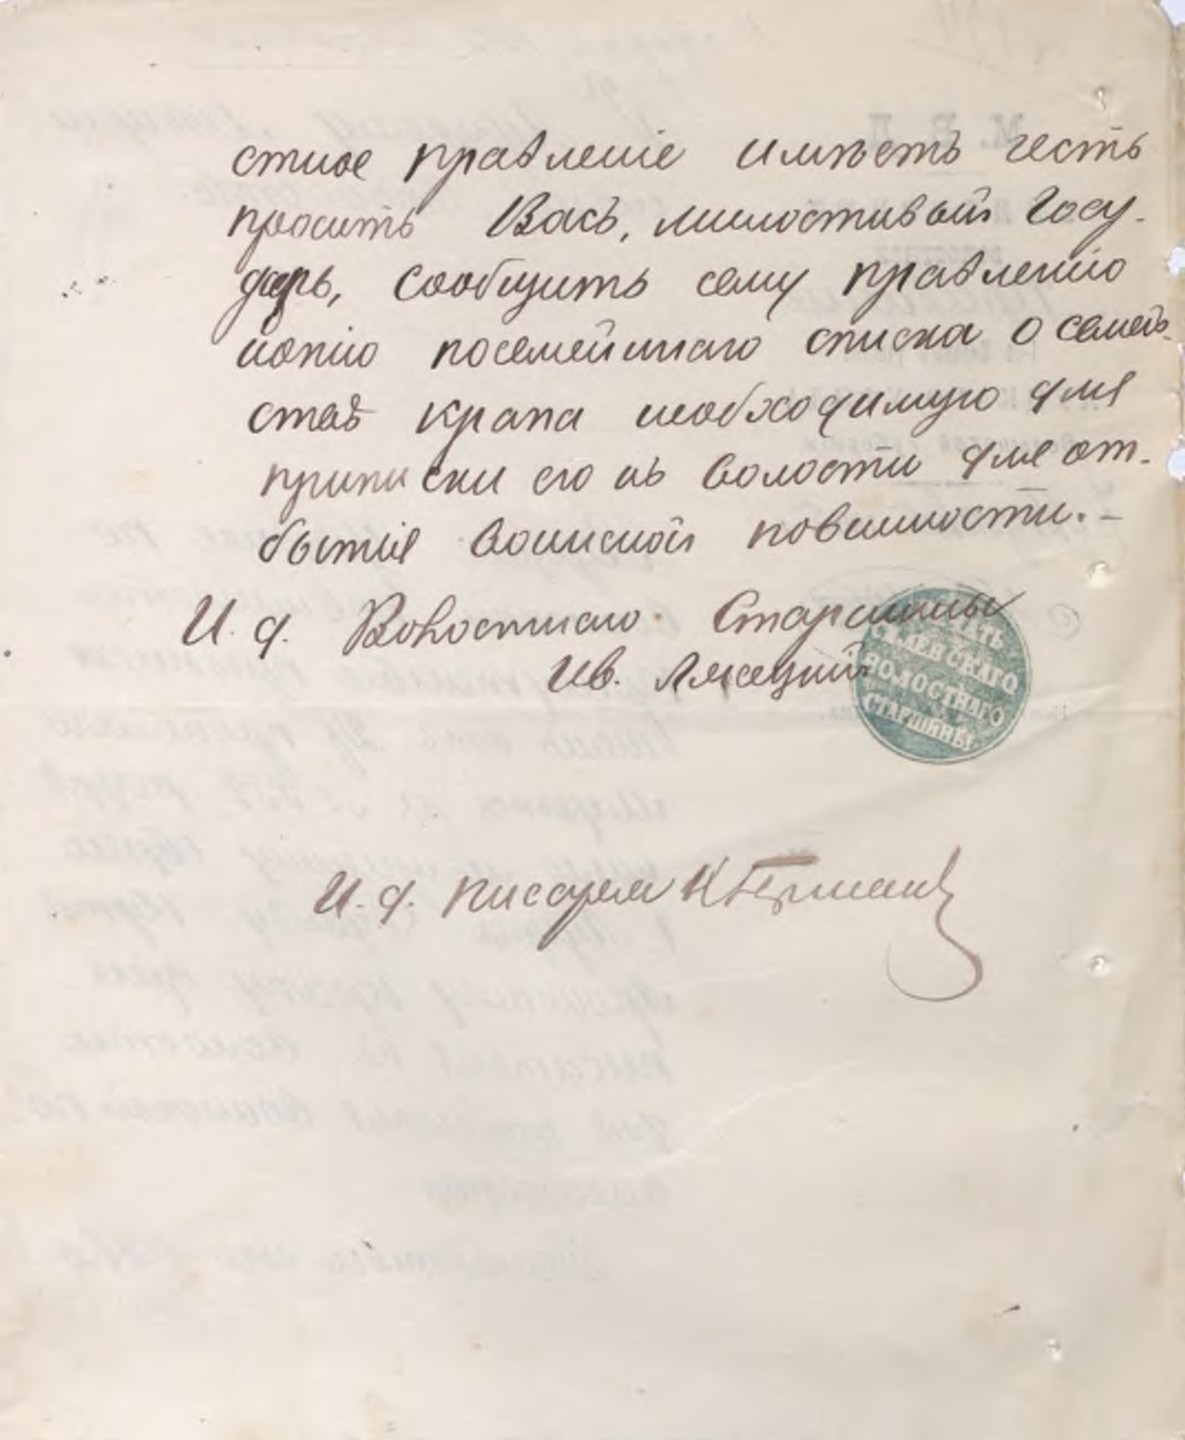 стное правленіе имѣетъ честь
просить Васъ, милостивый Госу-
дарь, сообщить сему правленію
копію посемейнаго списка о семей-
ствѣ Крапа необходимую для
приписки его къ волости для от-
бытія воинской повинности.-
И. д. Волостнаго Старшины
Ив.
ПЕЧАТЬ
СКАЕВСКАГО
ВОЛОСТНАГО
СТАРШИНЫ
И. д. писаря